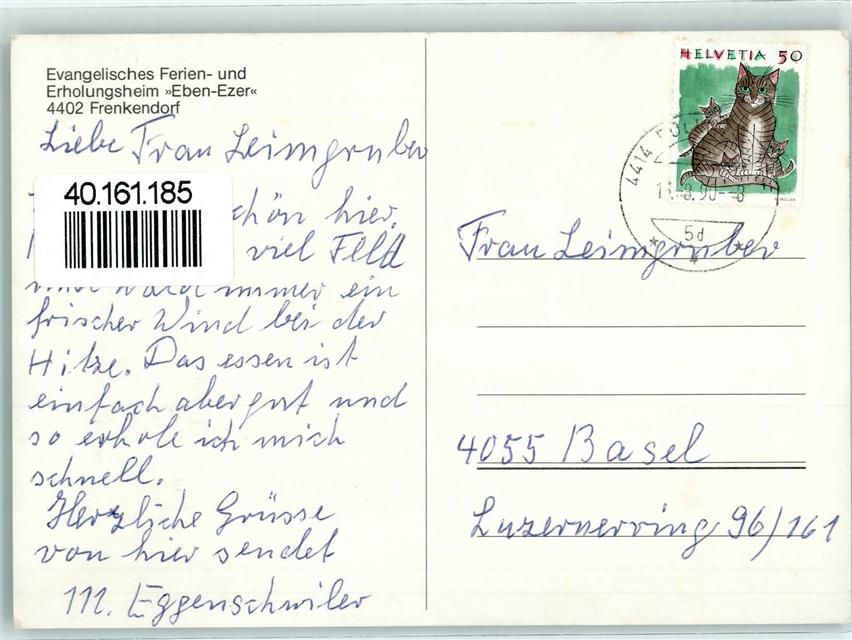 Evangelisches Ferien- und
Erholungsheim »Eben-Ezer«
4402 Frenkendorf
Liebe Frau Leimgruber
40.161.185
schön hier.
viel Feld
und Wald immer ein
frischer Wind bei der
Hitze. Das essen ist
einfach aber gut und
so erhole ich mich
schnell.
Herzliche Grüsse
von hier sendet
M. Eggenschwiler
HELVETIA 50
4414
90--8
5d
Frau Leimgruber
4055 Basel
Luzernerring 96/161